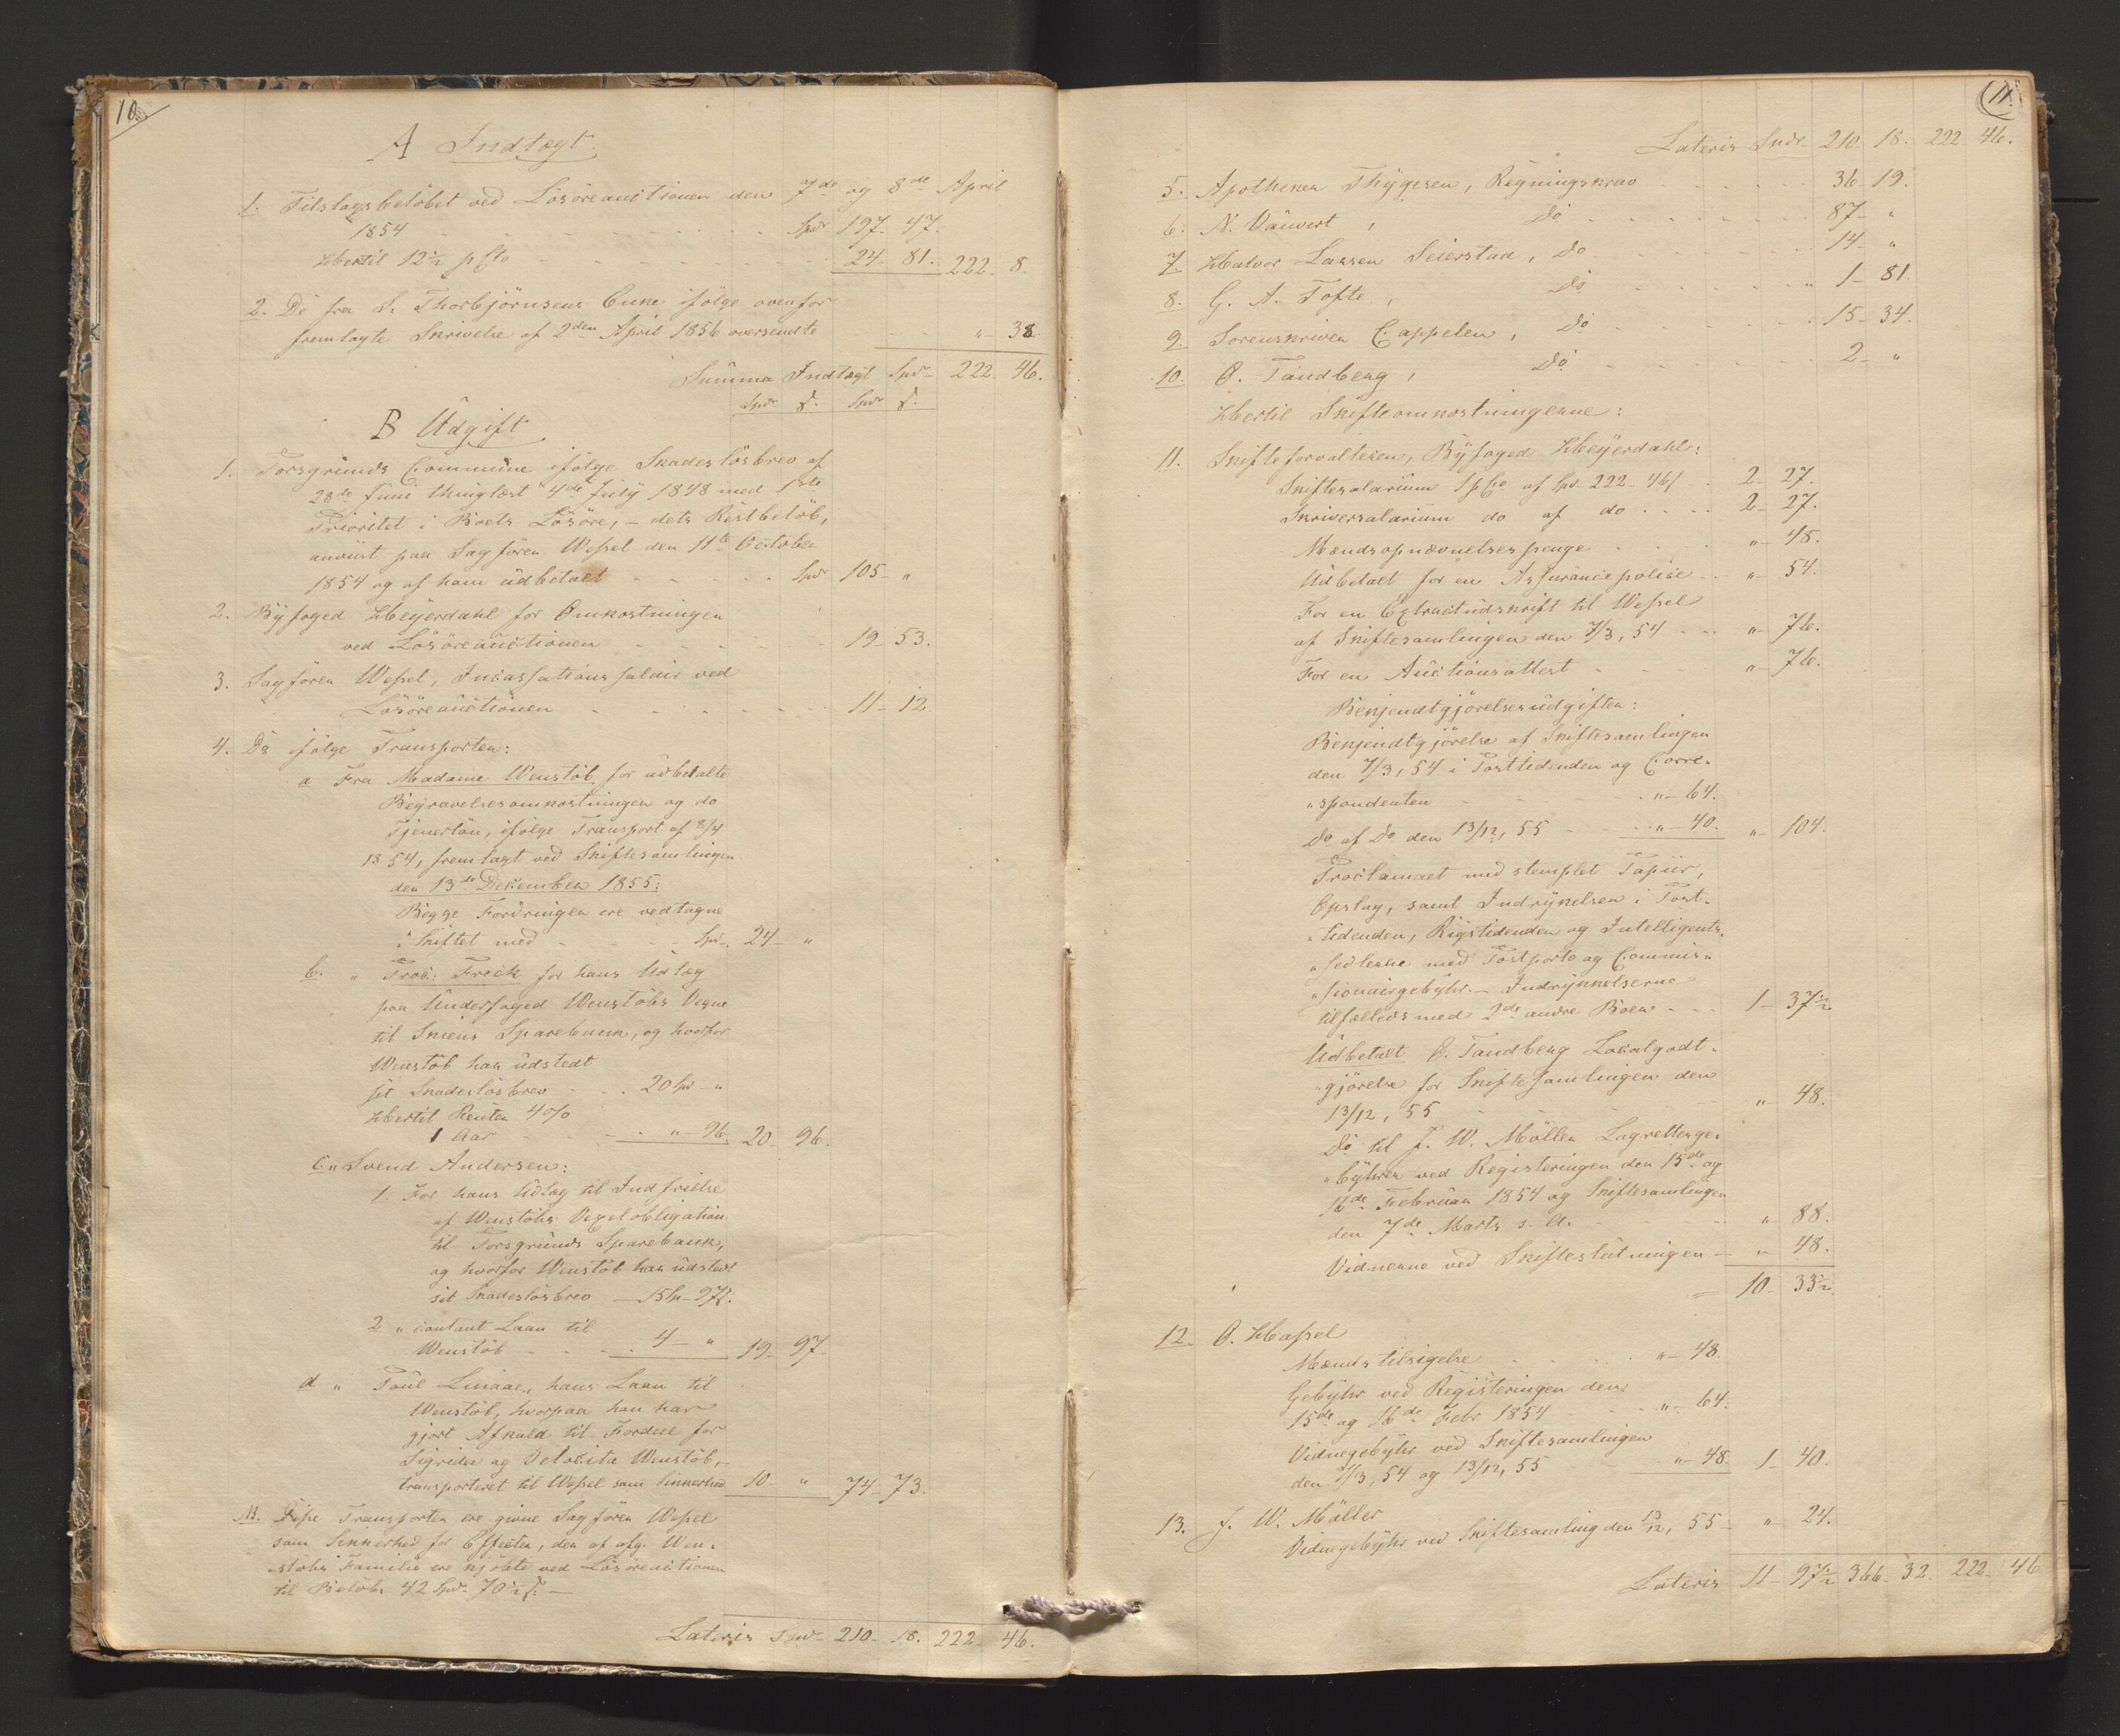 10
A Indtægt.
1. Tilslagsbeløbet ved Løsøreauctionen den 7de og 8de April
1854 Spdr 197. 47.
Hertil 12½ pCto 24. 81. 222. 8.
2. De fra S. Thorbjörnsens Enke ifølge ovenfor
fremlagte Skrivelse af 2den April 1856 oversendte „ 38
Summa Indtægt Spdr 222. 46.
Spdr β. Spdr β.
B Udgift
1. Porsgrunds Commune ifølge Skadesløsbrev af
28de Juni thinglæst 4de July 1848 med 1ste
Prioritet i Boets Løsøre, – dets Restbeløb,
anviist paa Sagfører Wessel den 11te October
1854 og af ham udbetalt Spdr 105 „
2. Byfoged Heyerdahl for Omkostninger
ved Løsøreauctionen 19 – 53.
3. Sagfører Wessel, Incassationssalair ved
Løsøreauctionen 11 – 12.
4. Do ifølge Transporter:
a Fra Madame Wenstøb for udbetalte
Begravelsesomkostninger og do
Tjenerløn, ifølge Transport af 8/4
1854, fremlagt ved Skiftesamlingen
den 13de December 1855:
Begge Fordringer ere vedtagne
i Skiftet med Spdr. 24 „
b. „ Proc: Frick for hans Udlæg
paa Underfoged Wenstøbs Vegne
til Skiens Sparebank, og hvorfor
Wenstøb har udstedt
sit Skadesløsbrev 20 Spd „
Hertil Renter 4%
1 Aar „ 96. 20. 96.
c. „ Svend Andersen:
1. For hans Udlæg til Indfrielse
af Wenstøbs Vexelobligation
til Porsgrunds Sparebank,
og hvorfor Wenstøb har udstedt
sit Skadesløsbrev – 15 Sp – 97β.
2 „ contant Laan til
Wenstøb 4 – „ 19 – 97
d „ Poul Lniaae, hans Laan til
Wenstøb, hvorpaa han har
gjort Afkald til Fordeel for
Sigrider og Pelocita Wenstøb,
transporteret til Wessel som Sikkerhed 10 „ 74 – 73.
NB. Disse Transporter ere givne Sagfører Wessel
som Sikkerhed for Effecter, der af afg. Wen-
støbs Familie ere kjøbte ved Løsøreauctionen
til Beløb 42 Spdr 70½ β. –
Lateris Spdr 210 – 18. 222 – 46.
11
Lateris Spdr 210. 18. 222 46.
5. Apotheker Thygesen, Regningskrav 36 19.
6. N. Vauvert, Do 87 – „
7. Halvor Lassen Seierstad, Do 14 „
8. G. A. Tofte, Do 1 – 81.
9. Sorenskriver Cappelen, Do 15 – 34.
10. O. Tandberg, Do 2 – „
Hertil Skifteomkostningerne:
11. Skifteforvalteren, Byfoged Heyerdahl:
Skiftesalarium 1 pCto af Spd 222 – 46β 2 27.
Skriversalarium do af do 2 – 27.
Mændsopnævnelsespenge „ 48.
Udbetalt for en Assurancepolice „ 54.
For en Extractudskrift til Wessel
af Skiftesamlingen den 7/3, 54 „ 76.
For en Auctionsattest „ 76.
Bekjendtgjørelsesudgifter:
Bekjendtgjørelse af Skiftesamlingen
den 7/3, 54 i Posttidenden og Corre-
„spondenten „ 64.
Do af Do den 13/12, 55 „ 40. „ 104.
Proclamaet med stemplet Papiir,
Opslag, samt Indrykelser i Post-
„tidenden, Rigstidenden og Intelligents-
„sedlerne med Postporto og Commis-
„sionairgebyhr. – Indrykkelserne
tilfælleds med 2de andre Boer 1 – 37½
Udbetalt O. Tandberg Localgodt-
„gjørelse for Skiftesamlingen den
13/12, 55 „ 48.
Do til J. W. Møller Lagrettege-
„byhrer ved Registeringen den 15de og
16de Februar 1854 og Skiftesamlingen
den 7de Marts s. A. „ 88.
Vidnerne ved Skifteslutningen „ 48.
10 – 33½
12. O. Hassel
Mændstilsigelse „ 48.
Gebyhr ved Registeringen den
15de og 16de Febr 1854 „ 64.
Vidnegebyhr ved Skiftesamlingen
den 7/3, 54 og 13/12, 55 „ 48. 1 40.
13. J. W. Møller
Vidnegebyhr ved Skiftesamling den 13/12, 55 „ 24.
Lateris 11 – 97½ 366. 32. 222. 46